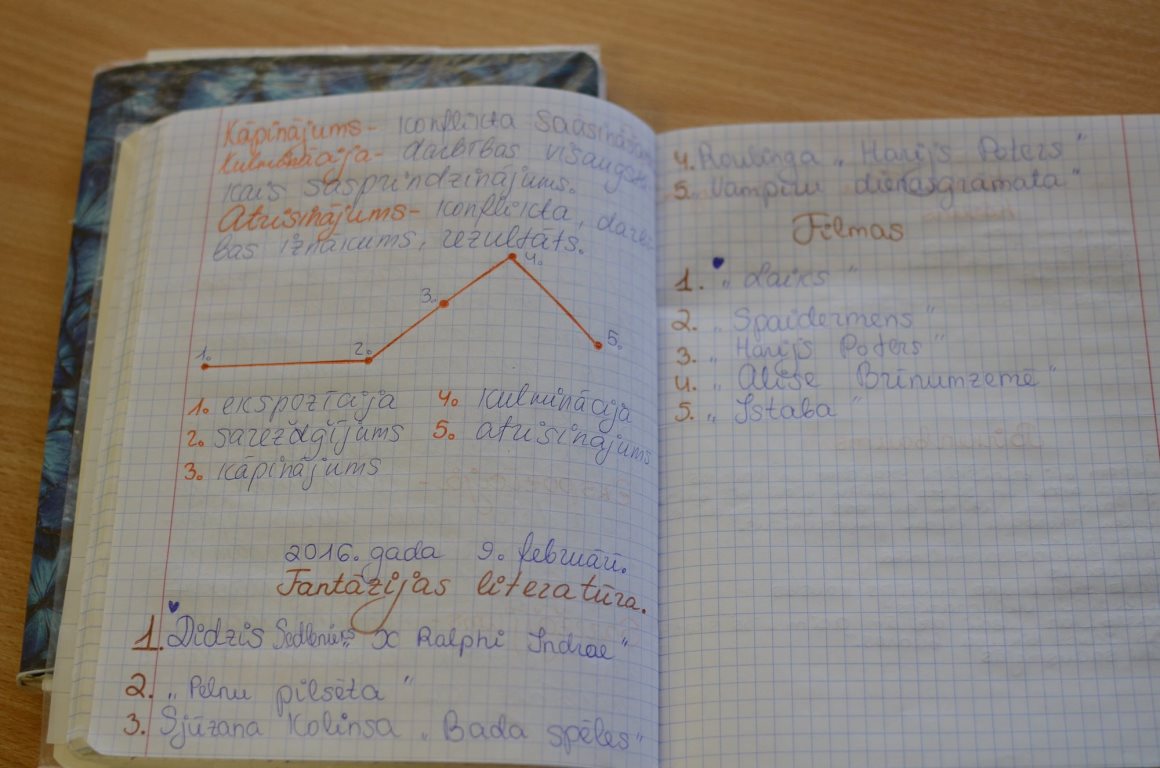 Kāpinājums - konflikta saasināšan
Kulminācija - darbības visaugst
kais saspridzinājums.
Atrisinājums - konflikta, darbī
bas iznākums, rezultāts.
1. 2. 3. 4. 5.
1. ekspozīcija 4. kulminācija
2. sarežģījums 5. atrisinājums
3. kāpinājums
2016. gada 9. februārī.
Fantāzijas literatūra.
1. Didzis Sedlenieks „X Ralphi Indrae"
2. „Pelnu pilsēta"
3. Sjūzana Kolinsa „Bada spēles"
4. Roulinga „Harijs Poters"
5. „Vampīru dienasgrāmata"
Filmas
1. „Laiks"
2. „Spaidermens"
3. „Harijs Poters"
4. „Alise Brīnumzemē"
5. „Istaba"